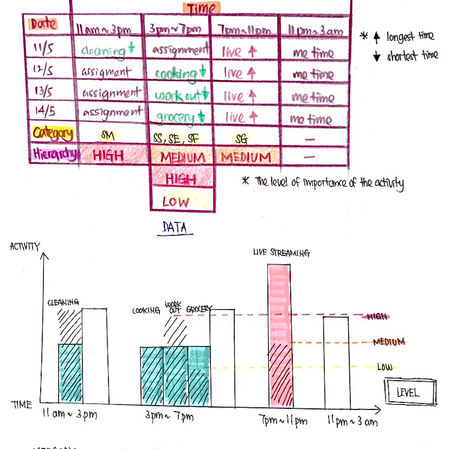 Time
Date 11am~3pm 3pm~7pm 7pm~11pm 11pm~3am
11/5 cleaning↓ assignment live↑ me time
12/5 assigment cooking↓ live↑ me time
13/5 assignment workout↓ live↑ me time
14/5 assignment grocery↓ live↑ me time
Category SM SS, SE, SF SG —
Hierarchy HIGH MEDIUM MEDIUM —
HIGH
LOW
* ↑ longest time
↓ shortest time
* the level of importance of the activity
DATA
ACTIVITY
LIVE STREAMING
CLEANING
COOKING WORK OUT GROCERY
HIGH
MEDIUM
LOW
LEVEL
TIME
11am~3pm 3pm~7pm 7pm~11pm 11pm~3am